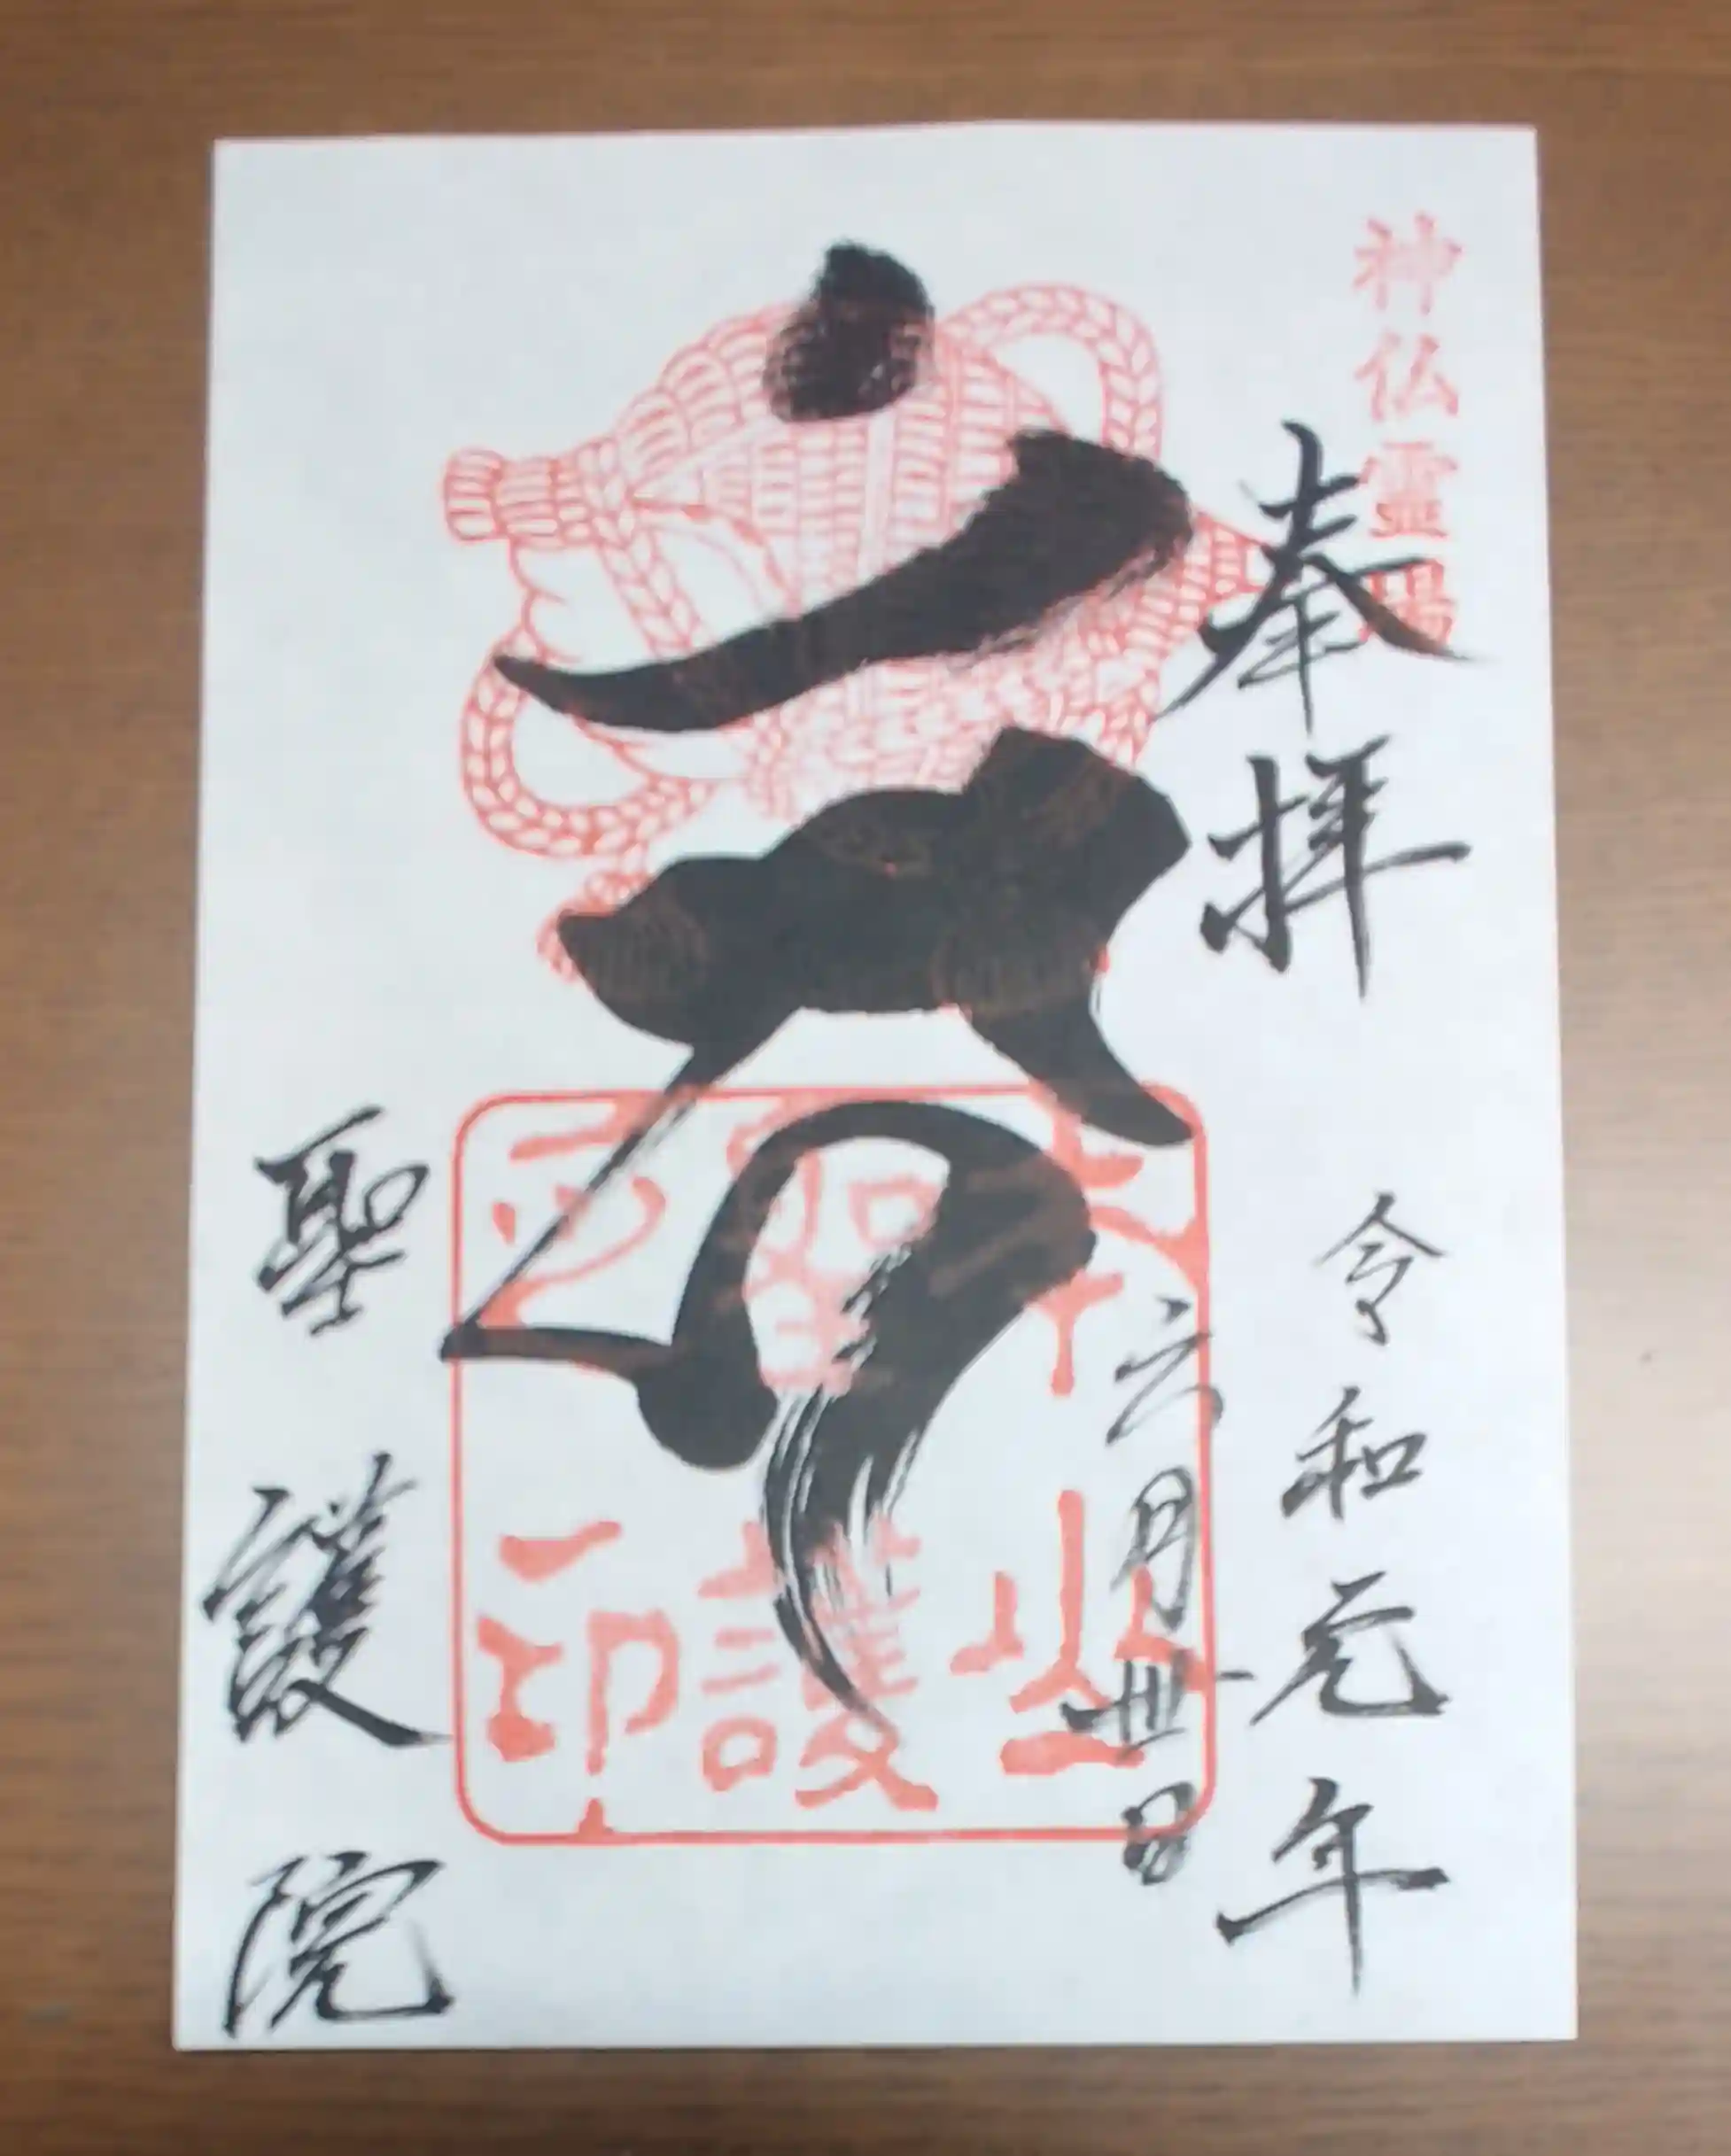 神仏霊場
奉拝
令和元年
六月卅日
本山
聖護
印
聖護院